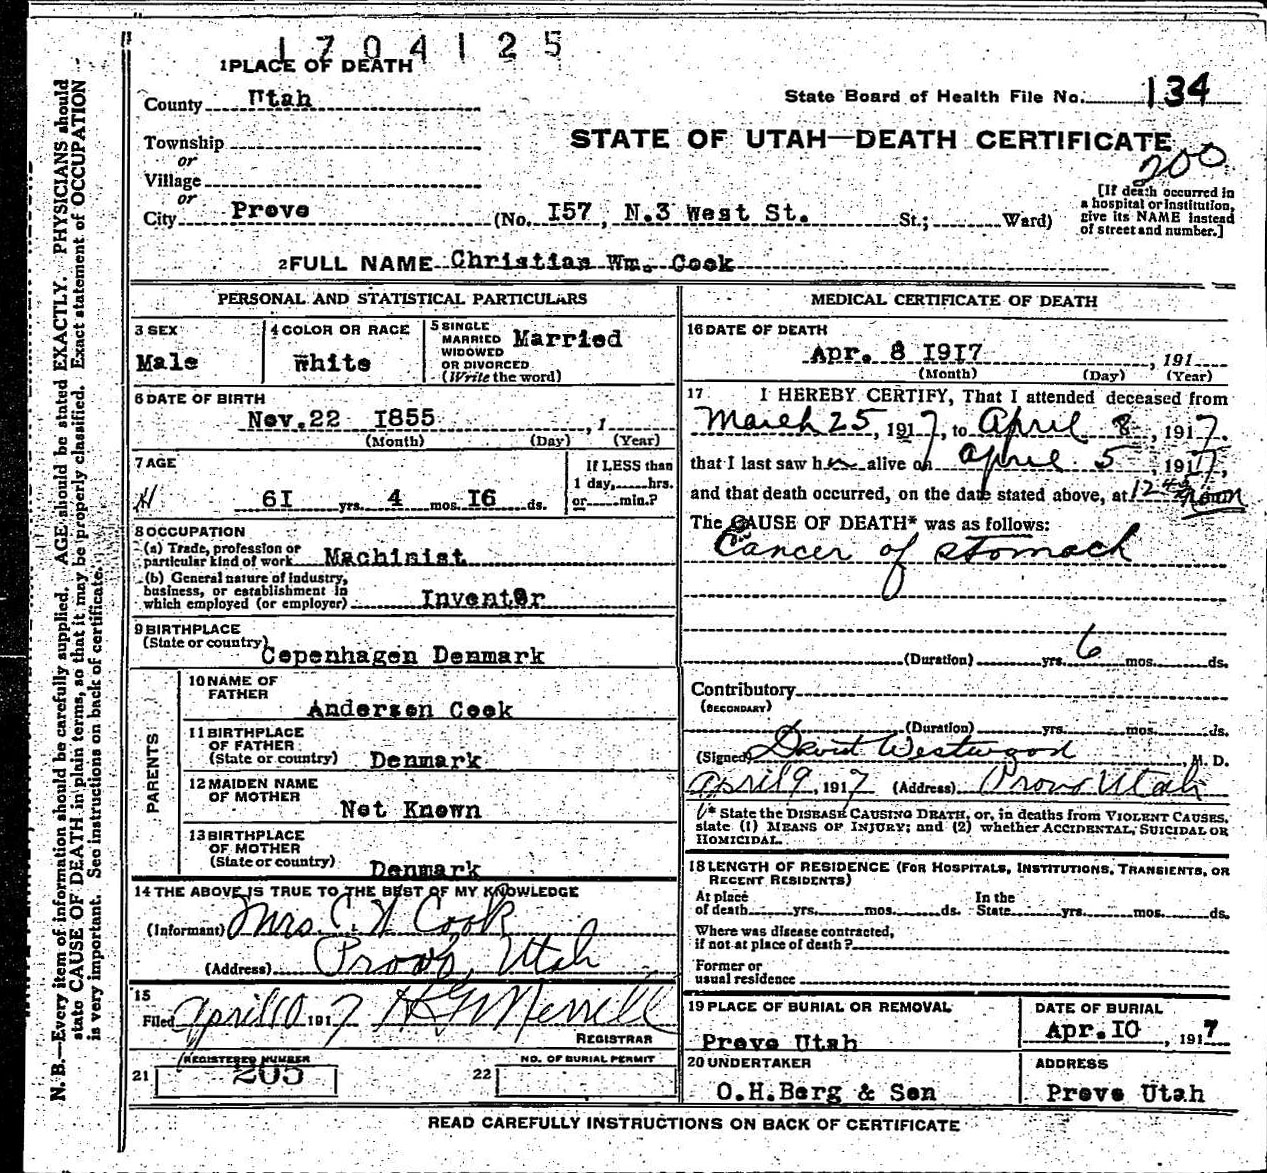 1704125
1 PLACE OF DEATH
County Utah
State Board of Health File No. 134
STATE OF UTAH—DEATH CERTIFICATE
200
Township
or
Village
or
City Provo (No. 157, N.3 West St. St.; Ward)
[If death occurred in
a hospital or institution,
give its NAME instead
of street and number.]
2 FULL NAME Christian Wm. Cook
PERSONAL AND STATISTICAL PARTICULARS
3 SEX
Male
4 COLOR OR RACE
White
5 SINGLE
MARRIED
WIDOWED
OR DIVORCED
(Write the word)
Married
6 DATE OF BIRTH
Nov.22 1855, 1
(Month) (Day) (Year)
7 AGE
61 yrs. 4 mos. 16 ds.
If LESS than
1 day, hrs.
or min.?
8 OCCUPATION
(a) Trade, profession or
particular kind of work Machinist
(b) General nature of industry,
business, or establishment in
which employed (or employer) Inventor
9 BIRTHPLACE
(State or country) Copenhagen Denmark
PARENTS
10 NAME OF
FATHER
Anderson Cook
11 BIRTHPLACE
OF FATHER
(State or country) Denmark
12 MAIDEN NAME
OF MOTHER
Not Known
13 BIRTHPLACE
OF MOTHER
(State or country) Denmark
14 THE ABOVE IS TRUE TO THE BEST OF MY KNOWLEDGE
(Informant) Mrs. C. W Cook
(Address) Provo, Utah
15
Filed April 10 1917 H G Merrill
REGISTRAR
21 REGISTERED NUMBER
205
22 NO. OF BURIAL PERMIT
MEDICAL CERTIFICATE OF DEATH
16 DATE OF DEATH
Apr. 8 1917, 191
(Month) (Day) (Year)
17 I HEREBY CERTIFY, That I attended deceased from
March 25, 1917, to April 8, 1917.
that I last saw h alive on April 5, 1917,
and that death occurred, on the date stated above, at
The CAUSE OF DEATH* was as follows:
Cancer of stomach
(Duration) yrs. 6 mos. ds.
Contributory
(SECONDARY)
(Duration) yrs. mos. ds.
(Signed) David Westwood, M. D.
April 9, 1917 (Address) Provo Utah
* State the DISEASE CAUSING DEATH, or, in deaths from VIOLENT CAUSES,
state (1) MEANS OF INJURY; and (2) whether ACCIDENTAL, SUICIDAL OR
HOMICIDAL.
18 LENGTH OF RESIDENCE (FOR HOSPITALS, INSTITUTIONS, TRANSIENTS, OR
RECENT RESIDENTS)
At place
of death yrs. mos. ds.
In the
State yrs. mos. ds.
Where was disease contracted,
if not at place of death?
Former or
usual residence
19 PLACE OF BURIAL OR REMOVAL
Provo Utah
DATE OF BURIAL
Apr.10, 1917
20 UNDERTAKER
O.H.Berg & Son
ADDRESS
Provo Utah
READ CAREFULLY INSTRUCTIONS ON BACK OF CERTIFICATE
N. B.—Every item of information should be carefully supplied. AGE should be stated EXACTLY. PHYSICIANS should
state CAUSE OF DEATH in plain terms, so that it may be properly classified. Exact statement of OCCUPATION
is very important. See instructions on back of certificate.